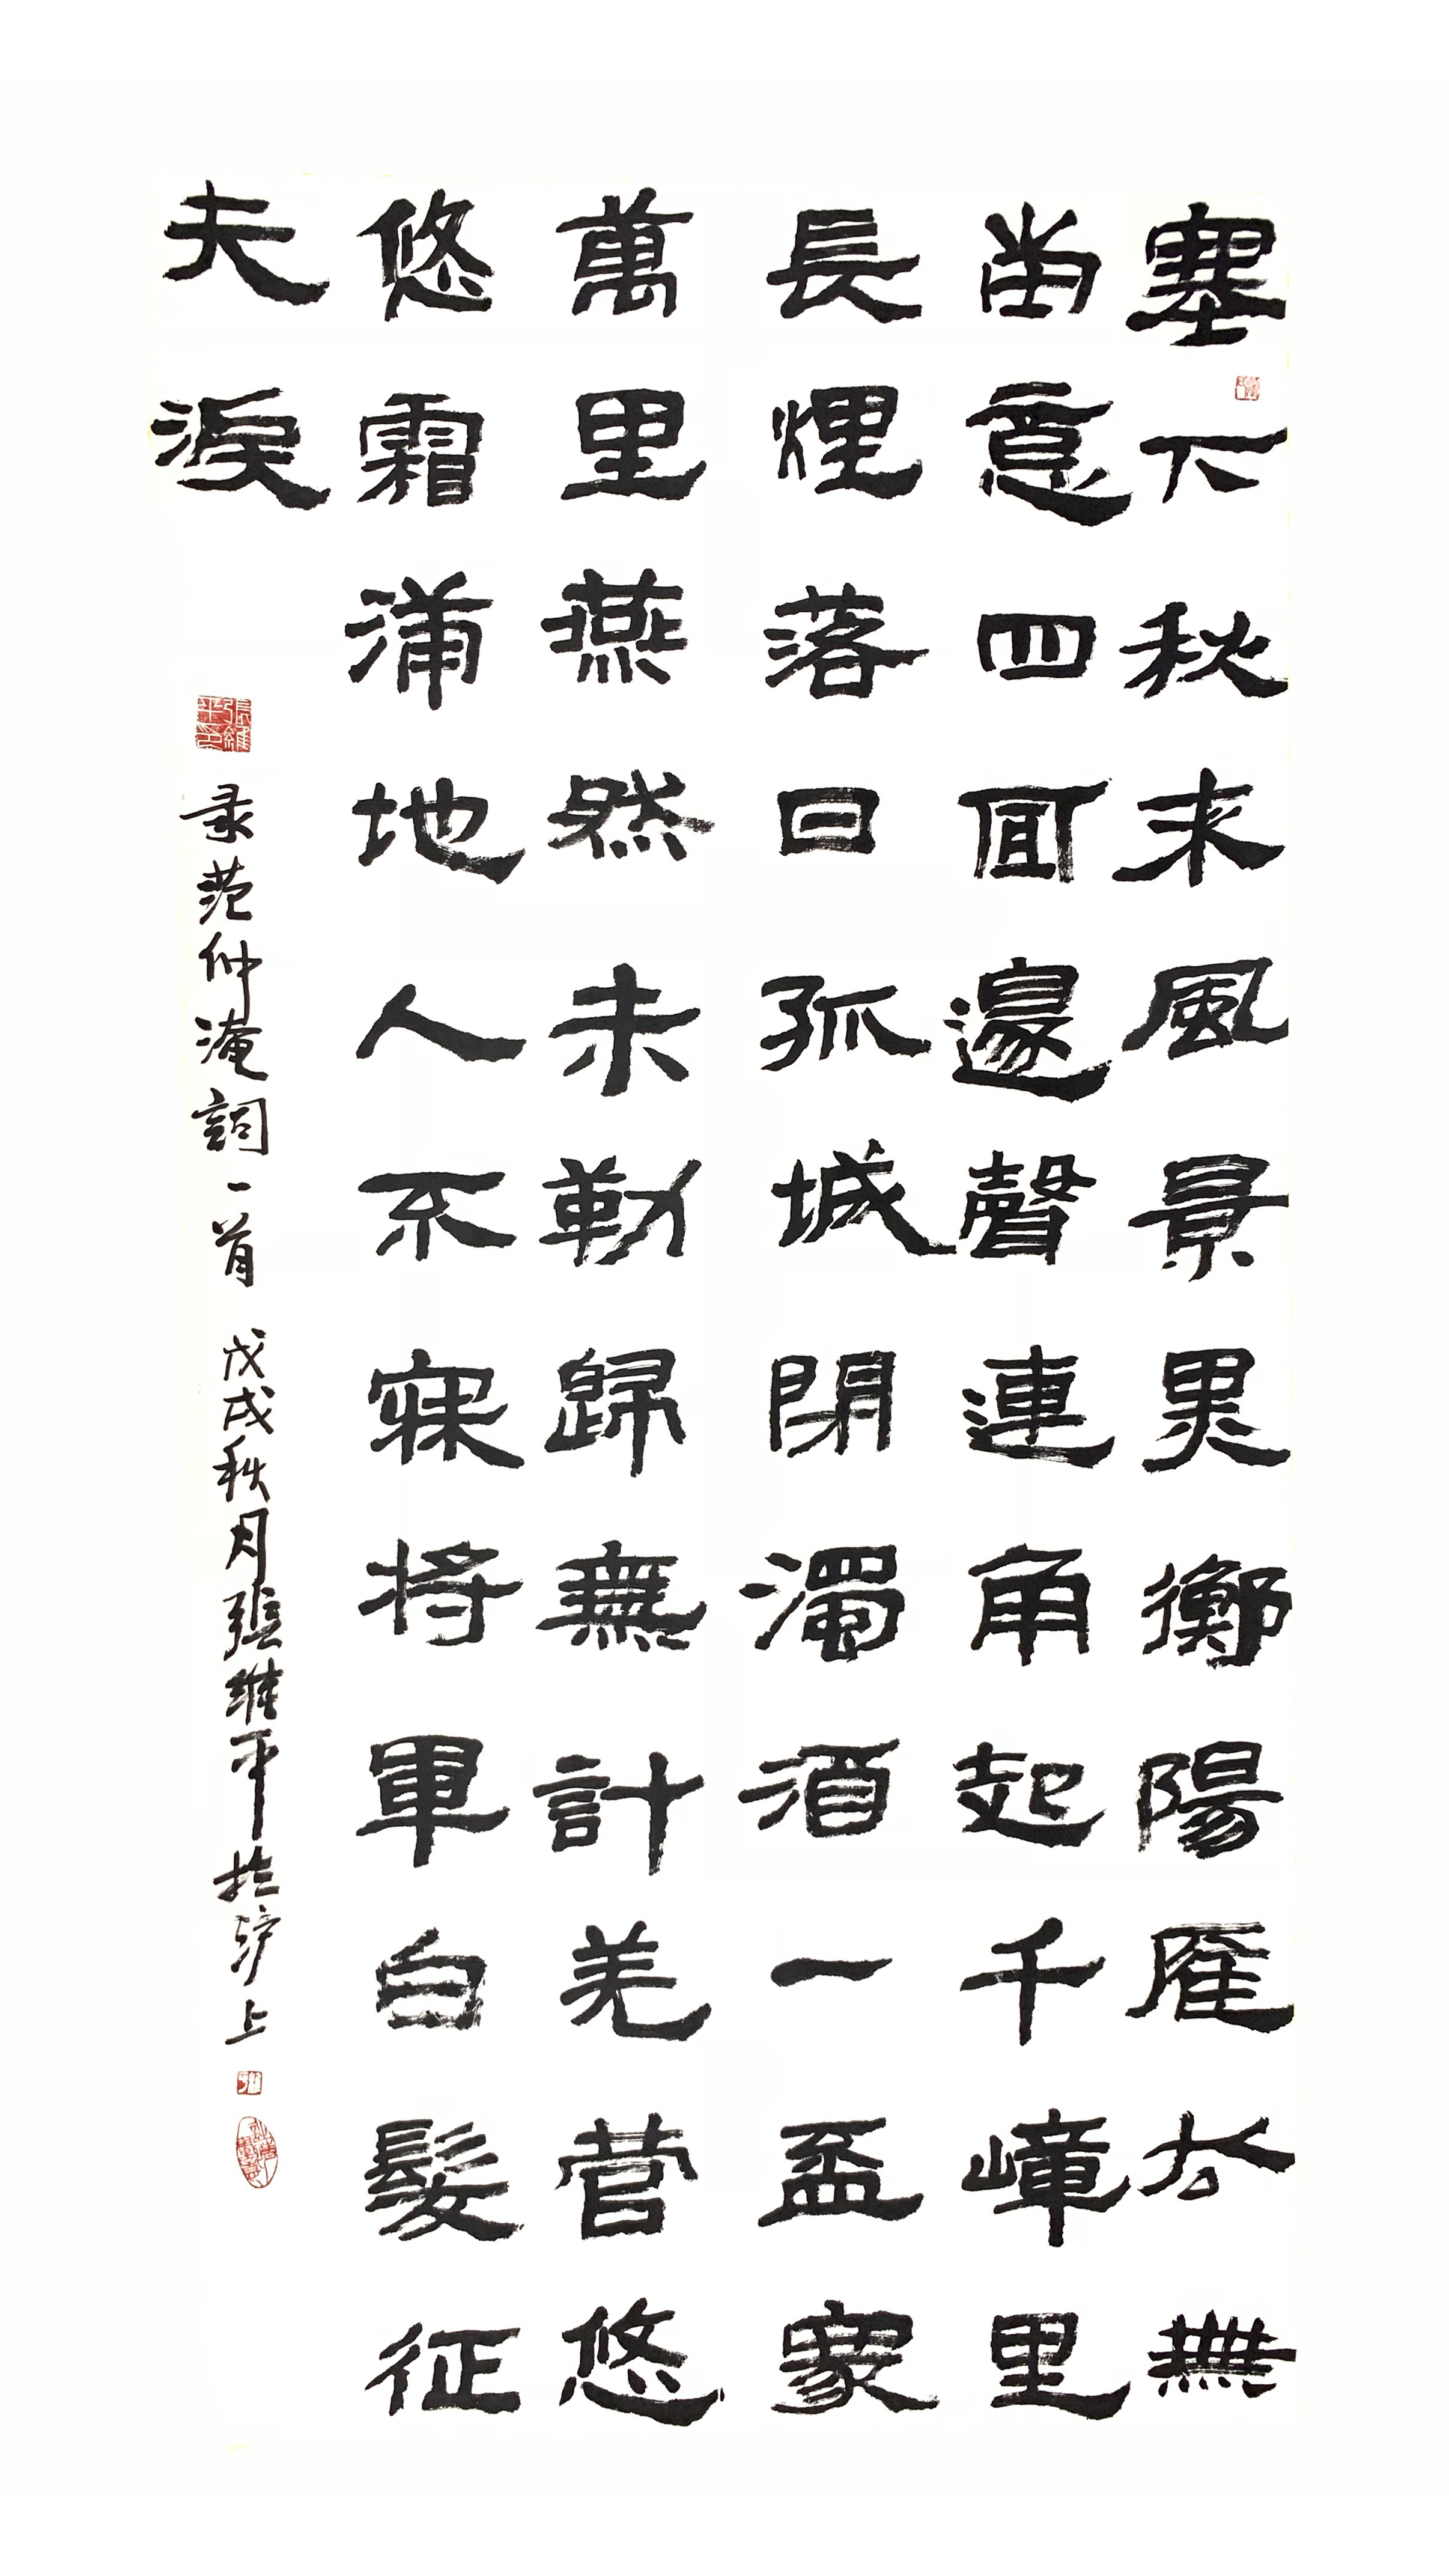 塞下秋来風景異衡陽雁去無
留意四面邊聲連角起千嶂里
長煙落日孤城閉濁酒一盃家
萬里燕然未勒歸無計羌管悠
悠霜滿地人不寐将軍白髮征
夫淚
張維平印
录范仲淹詞一首 戊戌秋月張維平於沪上